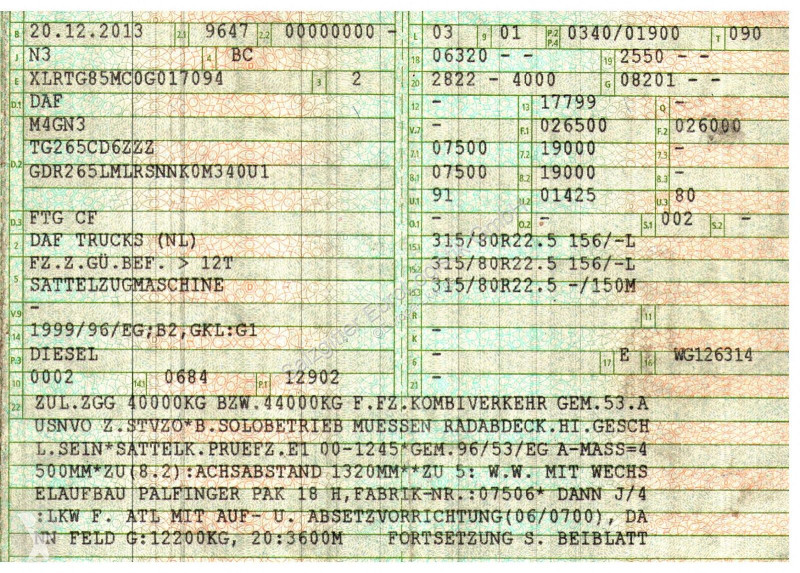 B 20.12.2013 2.1 9647 2.2 00000000 -
J N3 4 BC
E XLRTG85MC0G017094 3 2
D.1 DAF
M4GN3
TG265CD6ZZZ
D.2 GDR265LMLRSNNK0M340U1
D.3 FTG CF
2 DAF TRUCKS (NL)
FZ.Z.GÜ.BEF. > 12T
5 SATTELZUGMASCHINE
V.9 -
14 1999/96/EG;B2,GKL:G1
P.3 DIESEL
10 0002 14.1 0684 P.1 12902
L 03 9 01 P.2 P.4 0340/01900 T 090
18 06320 - - 19 2550 - -
20 2822 - 4000 G 08201 - -
12 - 13 17799 Q -
V.7 - F.1 026500 F.2 026000
7.1 07500 7.2 19000 7.3 -
8.1 07500 8.2 19000 8.3 -
U.1 91 U.2 01425 U.3 80
O.1 - O.2 - S.1 002 S.2 -
15.1 315/80R22.5 156/-L
15.2 315/80R22.5 156/-L
15.3 315/80R22.5 -/150M
R - 11
K -
6 - 17 E 16 WG126314
21 -
22 ZUL.ZGG 40000KG BZW.44000KG F.FZ.KOMBIVERKEHR GEM.53.A
USNVO Z.STVZO*B.SOLOBETRIEB MUESSEN RADABDECK.HI.GESCH
L.SEIN*SATTELK.PRUEFZ.E1 00-1245*GEM.96/53/EG A-MASS=4
500MM*ZU(8.2):ACHSABSTAND 1320MM**ZU 5: W.W. MIT WECHS
ELAUFBAU PALFINGER PAK 18 H,FABRIK-NR.:07506* DANN J/4
:LKW F. ATL MIT AUF- U. ABSETZVORRICHTUNG(06/0700), DA
NN FELD G:12200KG, 20:3600M FORTSETZUNG S. BEIBLATT